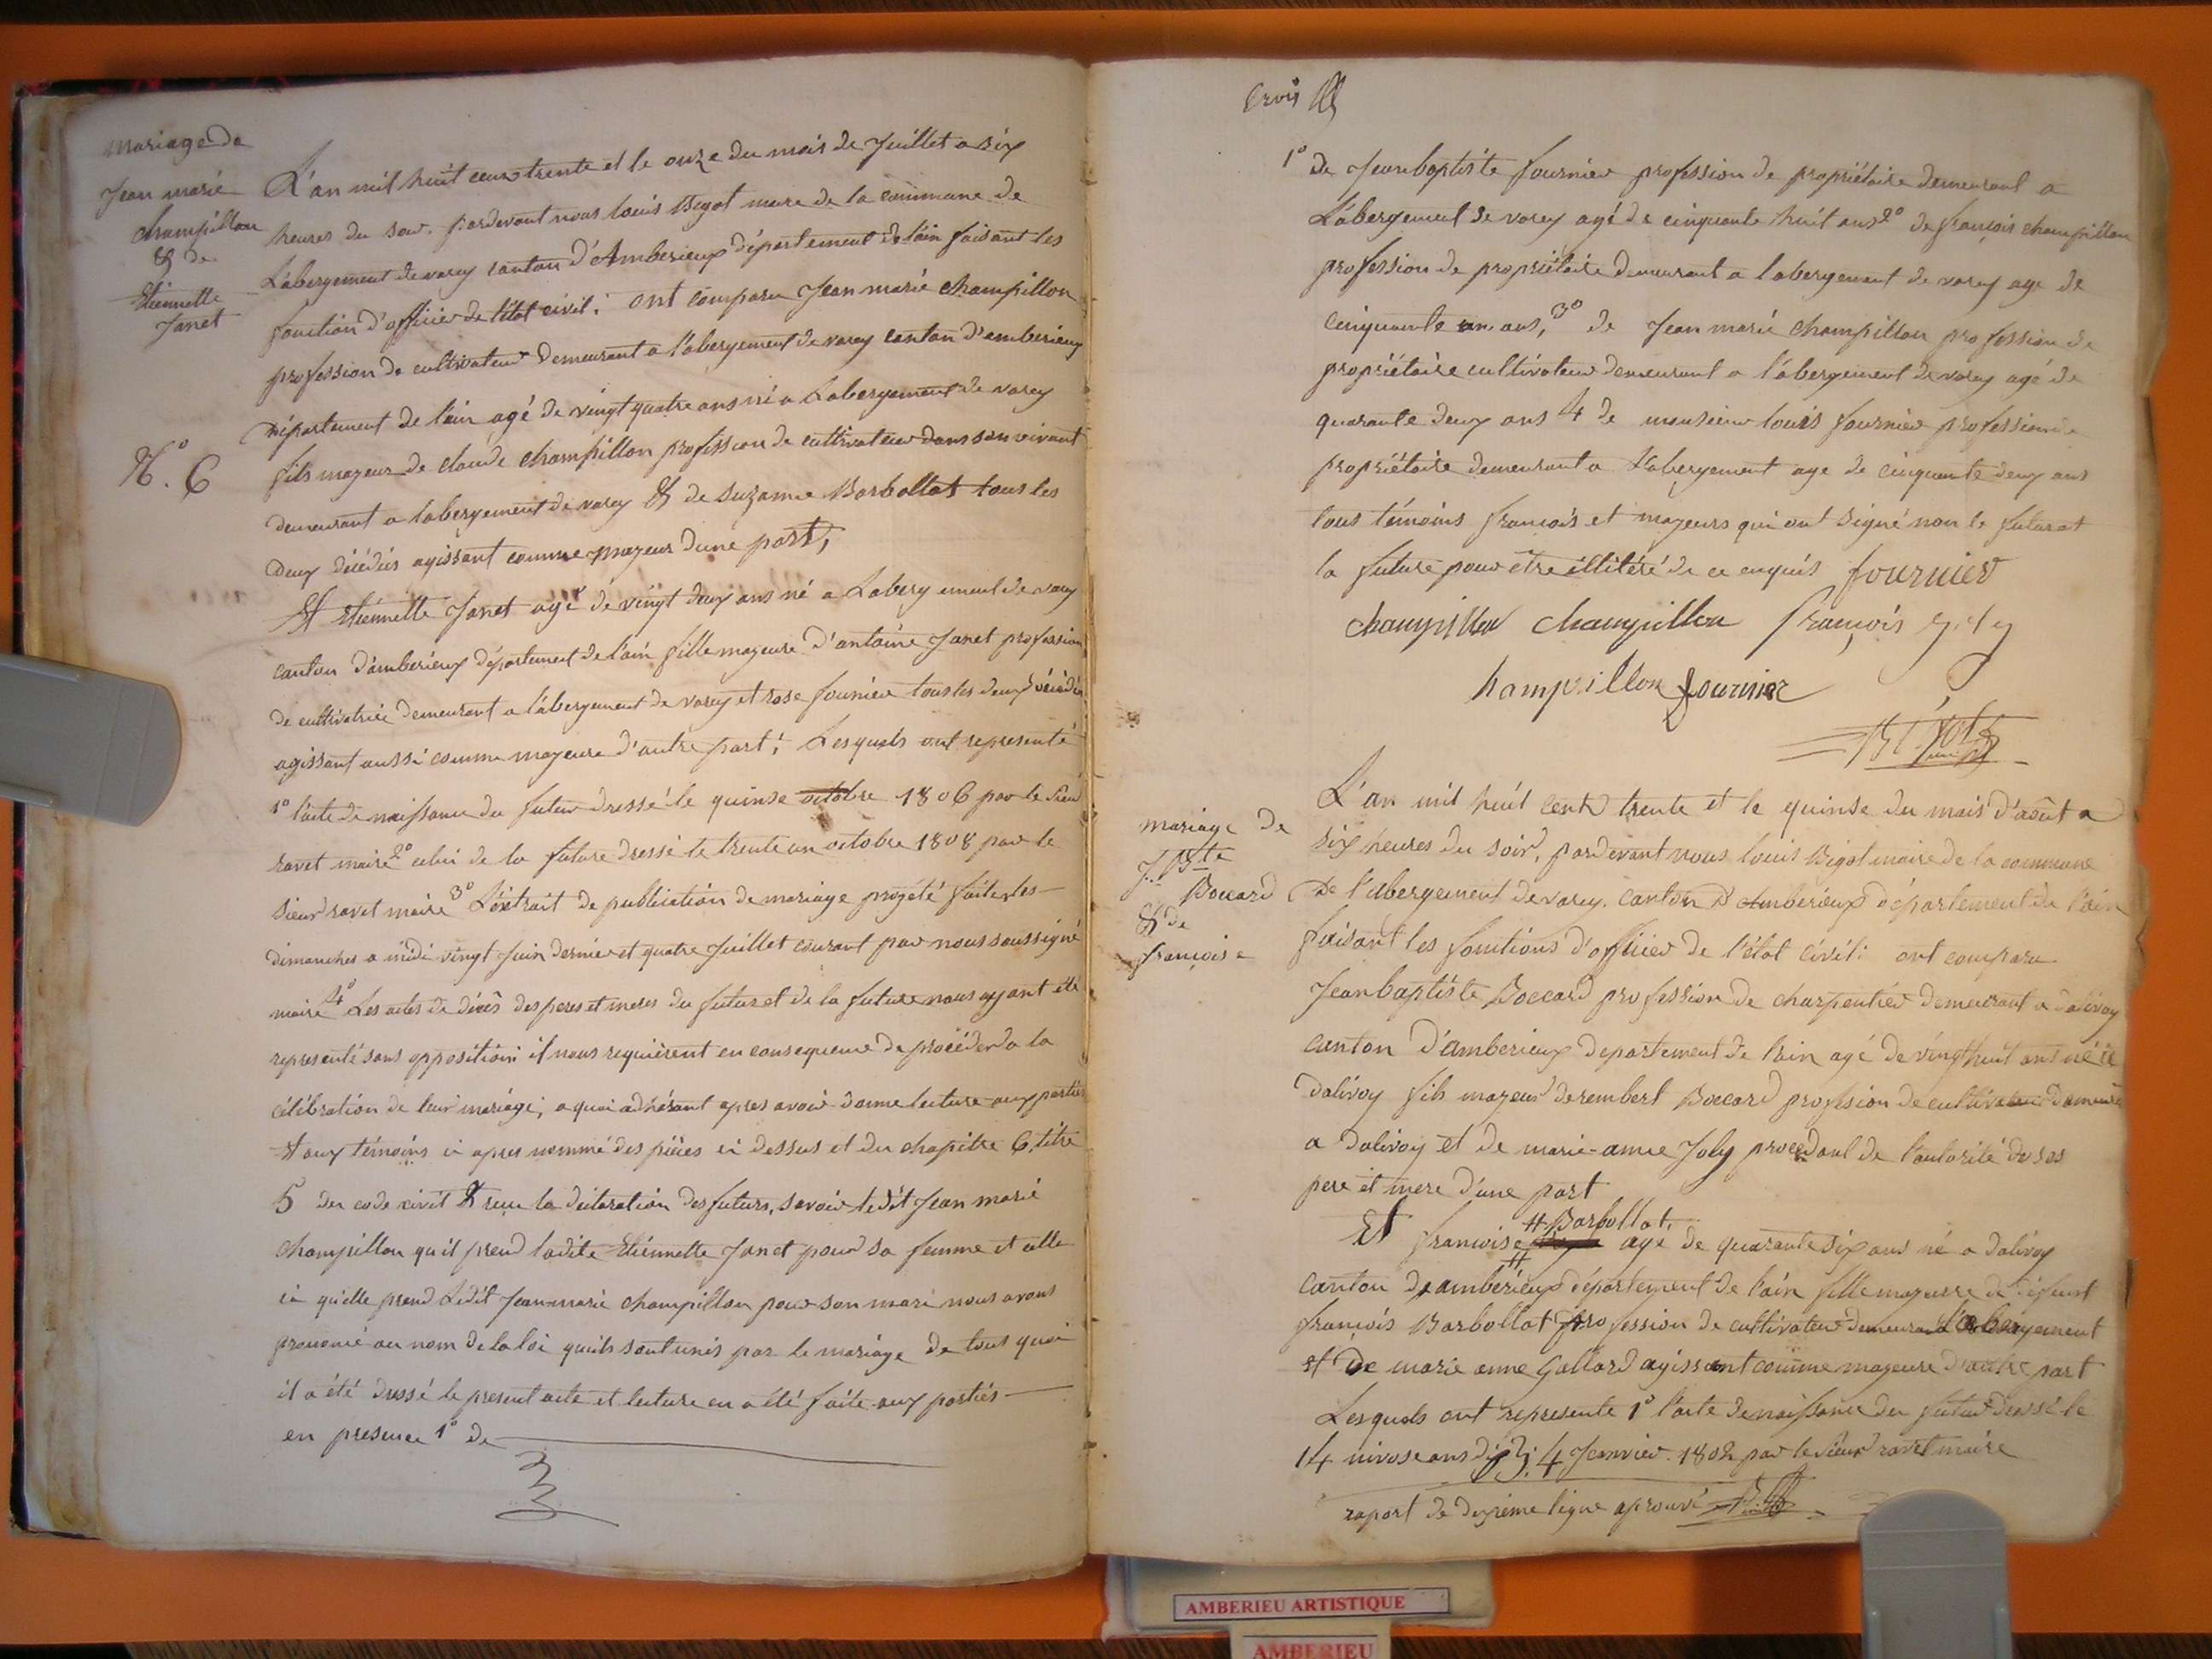 Mariage de
Jean marie
champillon
& de
Etiennette
Janet
N.° 6
L'an mil huit cens trente et le onze du mois de Juillet a six
heures du soir. pardevant nous louis Bigot maire de la commune de
L'abergement de varey canton d'Amberieux département de l'ain faisant les
fonction d'officier de l'état civil: ont comparu Jean marie champillon
profession de cultivateur demeurant a l'abergement de varey canton d'amberieux
département de l'ain agé de vingt quatre ans né a L'abergement de varey
fils mageur de claude champillon profession de cultivateur dans son vivant
demeurant a l'abergement de varey & de suzanne Barbollat tous les
deux décédés agissant comme mageur d'une part,
Et Etiennette Janet agé de vingt deux ans né a L'abergement de varey
canton d'amberieux département de l'ain fille mageure d'antoine Janet profession
de cultivatrice demeurant a l'abergement de varey et rose fournier tous les deux décédés
agissant aussi comme mageure d'autre part: Lesquels ont representé
1° l'acte de naissance du futur dressé le quinse octobre 1806 par le sieur
ravet maire 2° celui de la future dressé le trente un octobre 1808 par le
sieur ravet maire 3° L'extrait de publication de mariage projeté faite les
dimanches a midi vingt Juin dernier et quatre Juillet courant par nous soussigné
maire 4° Les actes de décès des peres et meres du futur et de la future nous ayant été
representé sans opposition il nous requièrent en consequence de procéder a la
célébration de leur mariage; a quoi adhérant apres avoir donne lecture aux parties
et aux témoins ci apres nommé des pièces ci dessus et du chapitre 6, titre
5 du code civil & reçu la déclaration des futurs, savoir ledit Jean marie
champillon qu'il prend ladite Etiennette Janet pour sa femme et elle
ci qu'elle prend Ledit Jean marie champillon pour son mari nous avons
prononcé au nom de la loi qu'ils sont unis par le mariage de tous quoi
il a été dressé le present acte et lecture en a été faite aux parties
en presence 1° de
trois
1° de Jean baptiste fournier profession de propriétaire demeurant a
L'abergement de varey agé de cinquante huit ans 2° de françois champillon
profession de propriétaire demeurant a l'abergement de varey age de
cinquante un ans, 3° de Jean marie champillon profession de
propriétaire cultivateur demeurant a l'abergement de varey agé de
quarante deux ans 4 de monsieur louis fournier profession de
propriétaire demeurant a L'abergement age de cinquante deux ans
tous témoins françois et mageurs qui ont signé non le futur et
la future pour être illitéré de ce enquis fournier
champillon champillon françois
hampillon fournier
Bigot
maire
mariage de
J.n Bte
Boccard
& de
françoise
L'an mil huit cent trente et le quinse du mois d'août a
six heures du soir, pardevant nous louis Bigot maire de la commune
de l'abergement de varey. canton d'amberieux département de l'ain
faisant les fonctions d'officier de l'état civil: ont comparu
Jean baptiste Boccard profession de charpentier demeurant a dalivoy
canton d'amberieux departement de l'ain agé de vingt huit ans né a
dalivoy fils mageur de rembert Boccard profession de cultivateur demeurt
a dalivoy et de marie-anne Joly procedant de l'autorité de ses
pere et mere d'une part
# Barbollat
Et françoise # age de quarante six ans né a dalivoy
canton d'amberieux département de l'ain fille mageure de défunt
françois Barbollat profession de cultivateur demeurant L'abergement
et de marie anne Gallard agissant comme mageure d'autre part
Lesquels ont represente 1° l'acte de naissance du futur dressé le
14 nivose ans dix 4 Janvier 1802 par le sieur ravet maire
raport de dixième ligne aprouvé
AMBERIEU ARTISTIQUE
AMBERIEU